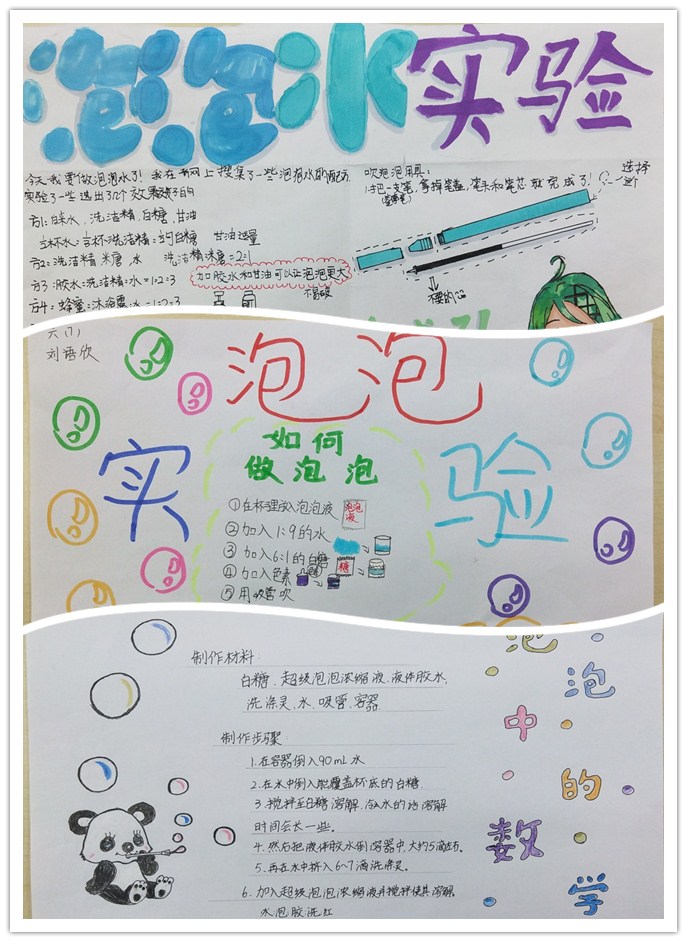 泡泡水实验
今天我要做泡泡水了！我在网上搜集了一些泡泡水的配方，
实验了一些选出了几个效果较好的
方1:白水，洗洁精，白糖，甘油
杯水:杯洗洁精:的白糖 甘油适量
方2:洗洁精 糖 水 洗洁精:糖=2:1
加胶水和甘油可以让泡泡更大
不易破
方3:胶水:洗洁精:水=1:2:3
方4:蜂蜜:沐浴露:水=1:2:3
吹泡泡用具:
1.把一支笔，拿掉笔盖，笔头和笔芯就完成了！
选择
一个
不要的
六(1)
刘语欣
泡泡
实验
如何
做泡泡
①在杯里放入泡泡液
泡泡
液
②加入1:9的水
③加入6:1的白糖
糖
④加入色素
⑤用吸管吹
制作材料:
白糖、超级泡泡浓缩液、液体胶水、
洗涤灵、水、吸管、容器
制作步骤:
1.在容器倒入90mL水
2.在水中倒入能覆盖杯底的白糖.
3.搅拌至白糖溶解.冷水的话溶解
时间会长一些。
4.然后把液体胶水倒容器中,大约5滴左右。
5.再在水中挤入6~7滴洗涤灵。
6.加入超级泡泡浓缩液并搅拌使其溶解。
水泡胶洗红
泡泡中的数学